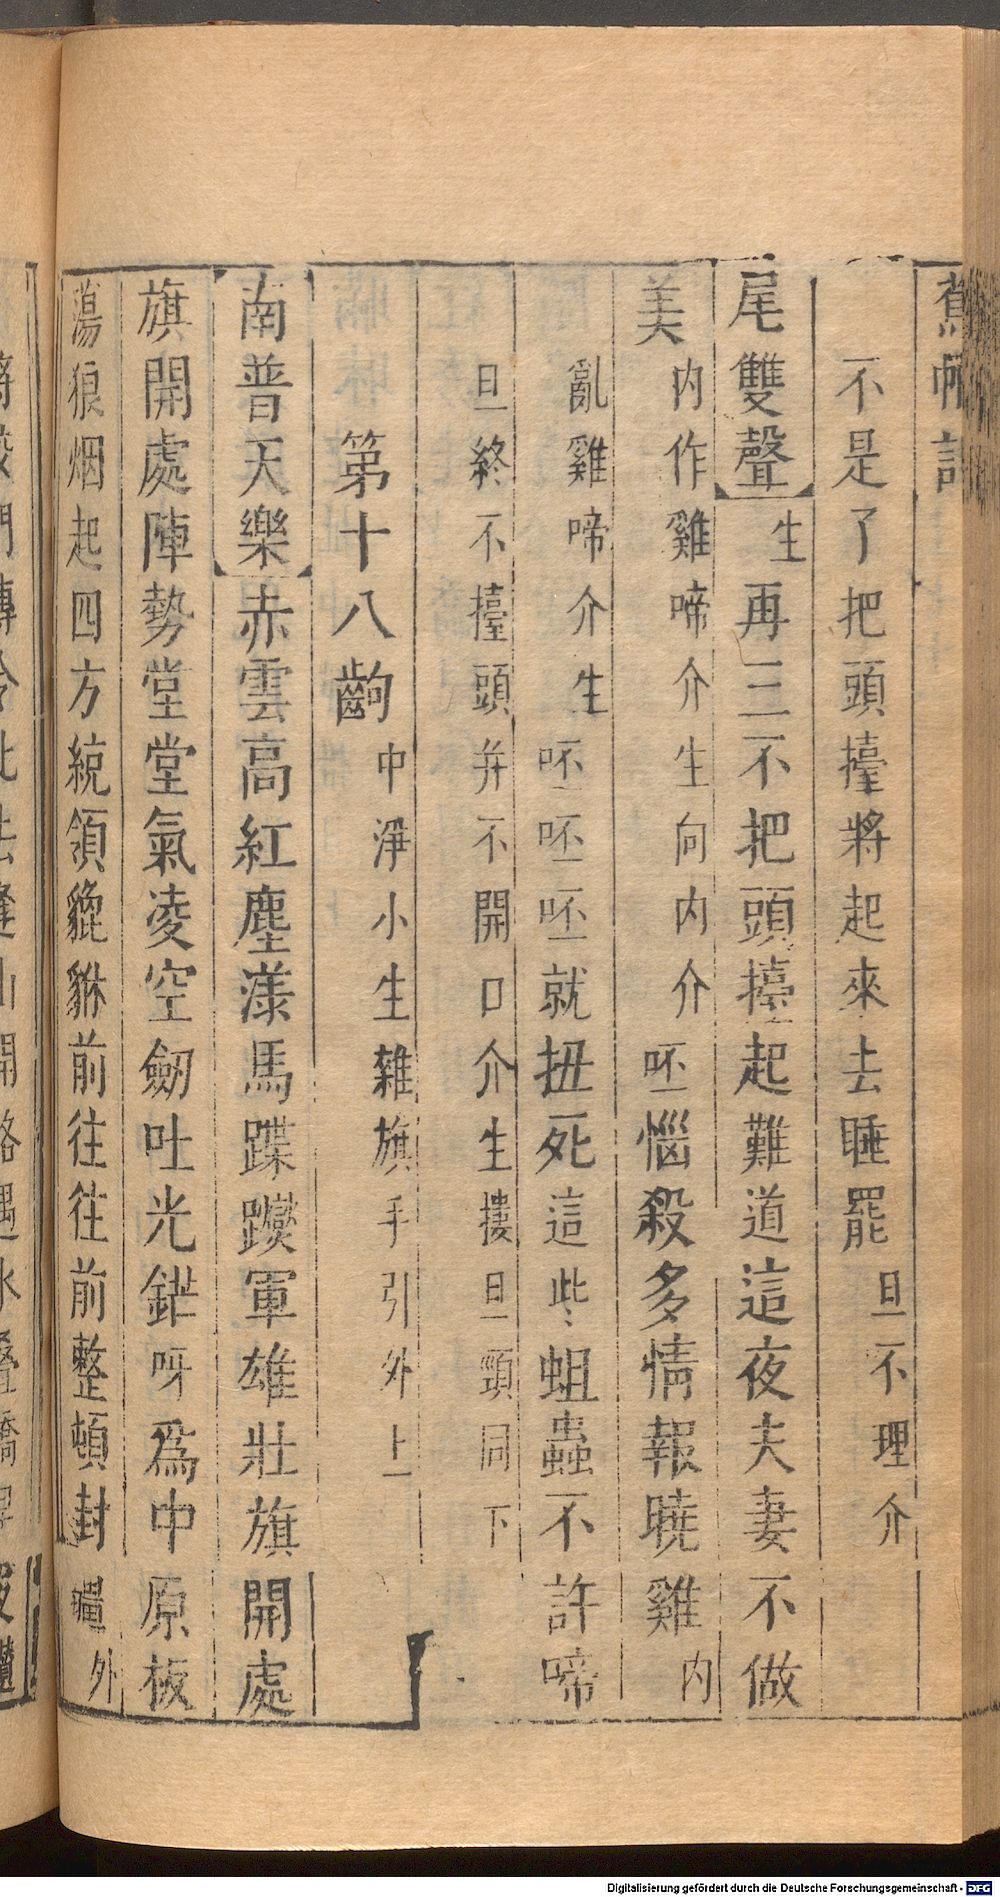 蕉帕記
不是了把頭擡將起來去睡罷旦不理介
尾雙聲生再三不把頭擡起難道這夜夫妻不做
美内作雞啼介生向内介呸惱殺多情報曉雞内
亂雞啼介生呸呸呸就扭死這些蛆蟲不許啼
旦終不擡頭并不開口介生摟旦頸同下
第十八齣中淨小生雜旗手引外上
南普天樂赤雲高紅塵漾馬蹀躞軍雄壯旗開處
旗開處陣勢堂堂氣凌空劒吐光鋩呀爲中原板
蕩狼烟起四方統領貔貅前往往前整頓封疆外
Digitalisierung gefördert durch die Deutsche Forschungsgemeinschaft - DFG